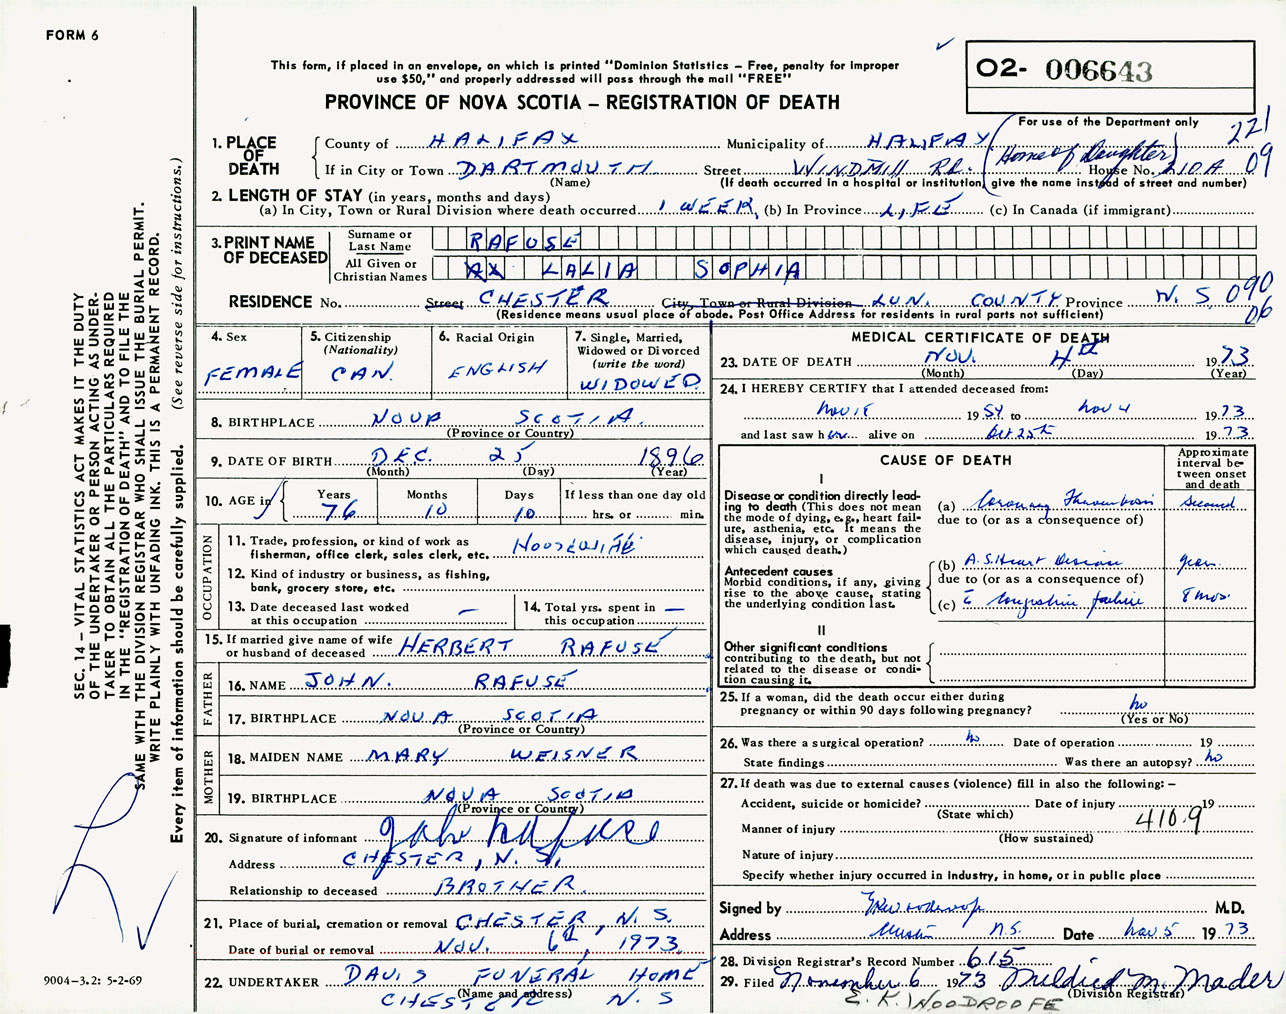 FORM 6
This form, if placed in an envelope, on which is printed "Dominion Statistics – Free, penalty for improper
use $50," and properly addressed will pass through the mail "FREE"
PROVINCE OF NOVA SCOTIA – REGISTRATION OF DEATH
O2- 006643
For use of the Department only
221
09
1. PLACE OF DEATH
County of HALIFAX Municipality of HALIFAX
If in City or Town DARTMOUTH Street WINDMILL RD. (Home of Daughter) House No. 210A
(Name) (If death occurred in a hospital or institution, give the name instead of street and number)
2. LENGTH OF STAY (in years, months and days)
(a) In City, Town or Rural Division where death occurred 1 WEEK (b) In Province LIFE (c) In Canada (if immigrant)
3. PRINT NAME OF DECEASED
Surname or Last Name RAFUSE
All Given or Christian Names LALIA SOPHIA
RESIDENCE No. Street CHESTER City, Town or Rural Division LUN. COUNTY Province N.S 090
06
(Residence means usual place of abode. Post Office Address for residents in rural parts not sufficient)
4. Sex
FEMALE
5. Citizenship
(Nationality)
CAN.
6. Racial Origin
ENGLISH
7. Single, Married,
Widowed or Divorced
(write the word)
WIDOWED
8. BIRTHPLACE NOVA SCOTIA.
(Province or Country)
9. DATE OF BIRTH DEC. 25 1896
(Month) (Day) (Year)
10. AGE in
Years Months Days If less than one day old
76 10 10 hrs. or min.
OCCUPATION
11. Trade, profession, or kind of work as
fisherman, office clerk, sales clerk, etc. HOUSEWIFE
12. Kind of industry or business, as fishing,
bank, grocery store, etc.
13. Date deceased last worked
at this occupation —
14. Total yrs. spent in
this occupation —
15. If married give name of wife
or husband of deceased HERBERT RAFUSE
FATHER
16. NAME JOHN. RAFUSE
17. BIRTHPLACE NOVA SCOTIA
(Province or Country)
MOTHER
18. MAIDEN NAME MARY WEISNER
19. BIRTHPLACE NOVA SCOTIA
(Province or Country)
20. Signature of informant John Rafuse
Address CHESTER, N. S.
Relationship to deceased BROTHER.
21. Place of burial, cremation or removal CHESTER, N. S
Date of burial or removal NOV. 6th, 1973
22. UNDERTAKER DAVIS FUNERAL HOME
(Name and address)
CHESTER N. S
MEDICAL CERTIFICATE OF DEATH
23. DATE OF DEATH NOV. 4th 1973
(Month) (Day) (Year)
24. I HEREBY CERTIFY that I attended deceased from:
Nov 18 1954 to Nov 4 1973
and last saw her alive on Oct 25th 1973
CAUSE OF DEATH
Approximate interval between onset and death
I
Disease or condition directly lead-
ing to death (This does not mean
the mode of dying, e.g., heart fail-
ure, asthenia, etc. It means the
disease, injury, or complication
which caused death.)
(a) Coronary Thrombosis second
due to (or as a consequence of)
Antecedent causes
Morbid conditions, if any, giving
rise to the above cause, stating
the underlying condition last.
(b) A.S. Heart Disease years
due to (or as a consequence of)
(c) c̄ congestive failure 8 mos.
II
Other significant conditions
contributing to the death, but not
related to the disease or condi-
tion causing it.
25. If a woman, did the death occur either during
pregnancy or within 90 days following pregnancy? no
(Yes or No)
26. Was there a surgical operation? no Date of operation 19
State findings Was there an autopsy? no
27. If death was due to external causes (violence) fill in also the following: –
Accident, suicide or homicide? Date of injury 19
(State which)
Manner of injury 410.9
(How sustained)
Nature of injury
Specify whether injury occurred in industry, in home, or in public place
Signed by M.D.
Address Chester N.S. Date Nov 5 1973
28. Division Registrar's Record Number 615
29. Filed November 6 1973 Mildred M. Mader
(Division Registrar)
E. K. WOODROOFE
SEC. 14 – VITAL STATISTICS ACT MAKES IT THE DUTY
OF THE UNDERTAKER OR PERSON ACTING AS UNDER-
TAKER TO OBTAIN ALL THE PARTICULARS REQUIRED
IN THE "REGISTRATION OF DEATH" AND TO FILE THE
SAME WITH THE DIVISION REGISTRAR WHO SHALL ISSUE THE BURIAL PERMIT.
WRITE PLAINLY WITH UNFADING INK. THIS IS A PERMANENT RECORD.
Every item of information should be carefully supplied. (See reverse side for instructions.)
9004–3.2: 5-2-69